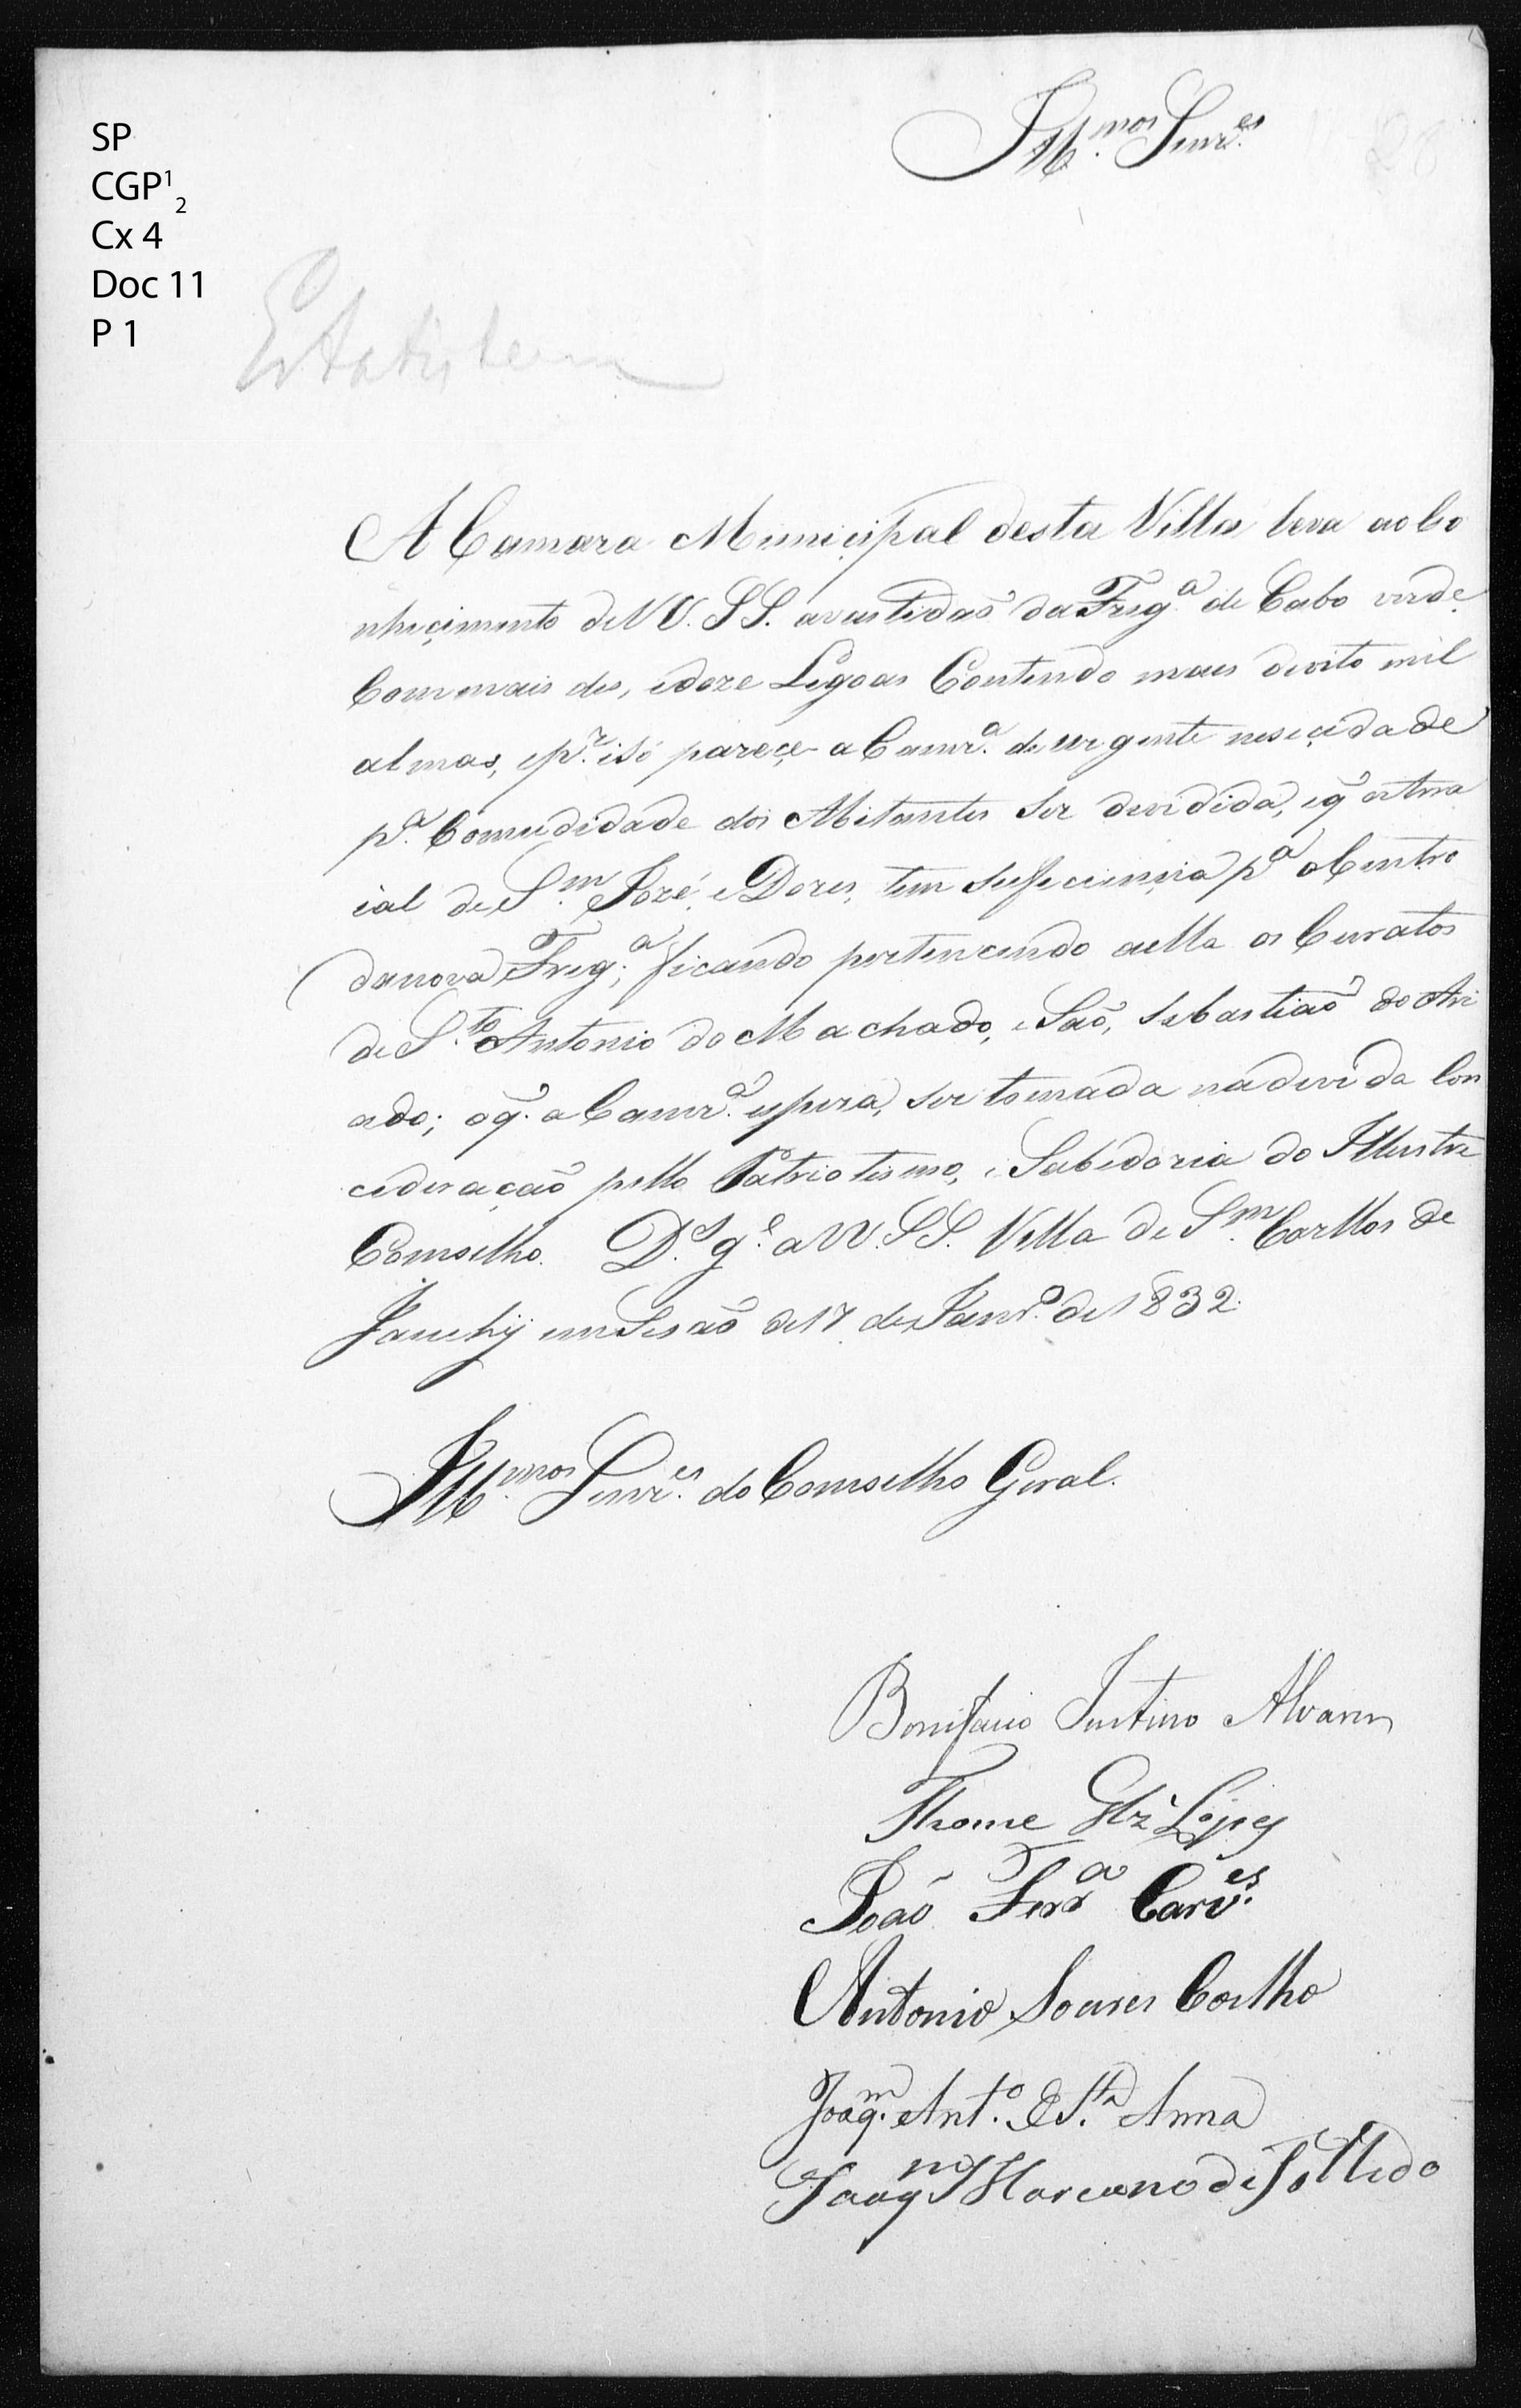 SP
CGP¹₂
Cx 4
Doc 11
P 1
Ill.mos Senr.es
Estatistica
A Camara Municipal desta Villa leva ao Co
nheçimento de V.V. S.S. avastidaõ da Freg.ª de Cabo verde
Com mais des, edoze Legoas Contendo mais deoito mil
almas, e p.r isso pareçe a Camr.ª de urgente neseçidade
p.ª Comudidade dos Abitantes ser devidida, e q̃
ial de S.m Jozé, e Dores, tem sufeciencia p.ª o Centro
da nova Freg.ª; ficando pertencendo aella os Curatos
de S.to Antonio do Machado, e Saõ, Sebastiaõ do Ari
ado; o q̃. a Camr.ª espera, ser tomada nadevida Con
cideraçaõ pello Patriotismo, e Sabedoria do Illustre
Comselho. D.s g.e a VV. SS. Villa de S.m Carllos de
Jacuhÿ em Sesaõ de 17 de Janr.º de 1832.
Ill.mos Senr.es do Comselho Geral.
Bonifacio Justino Alvares
Thome Glz Lopes
Joaõ Ferr.ª Carv.es
Antonio Soares Coelho
Joaq.m Ant.º de S.ta Anna
Joaq.m Marcano de Tolledo